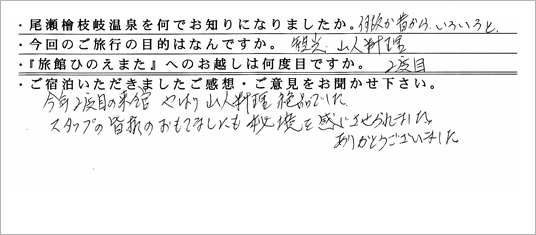 ・尾瀬檜枝岐温泉を何でお知りになりましたか。何故か昔から、いろいろと。
・今回のご旅行の目的はなんですか。 観光、山人料理
・『旅館ひのえまた』へのお越しは何度目ですか。 2度目
・ご宿泊いただきましたご感想・ご意見をお聞かせ下さい。
今年2度目の来館 やはり山人料理 絶品でした
スタッフの皆様のおもてましにも 秘境を感じさせられました。
ありがとうございました